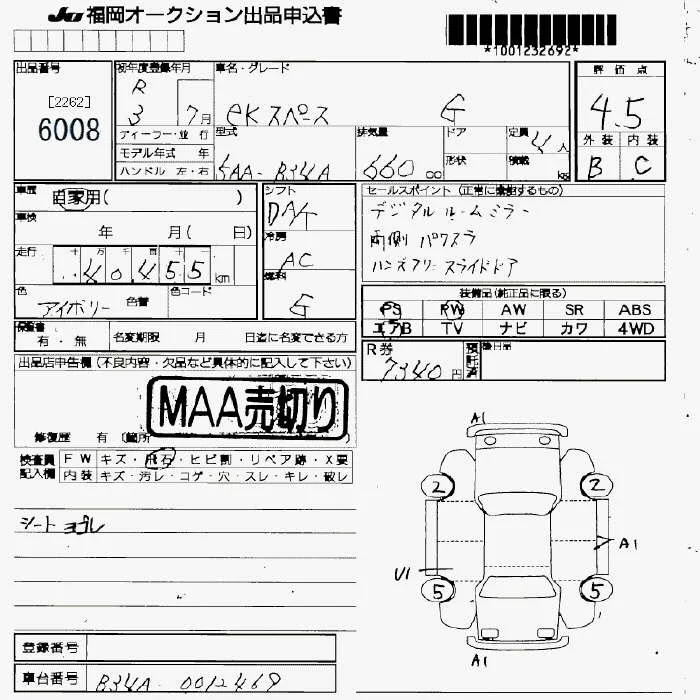 JU 福岡オークション出品申込書
*1001232692*
出品番号
[2262]
6008
初年度登録年月
R 3 7月
車名・グレード
eKスペース G
評価点
4.5
外装 内装
B C
ディーラー・並行
モデル年式 年
ハンドル 左・右
型式
5AA-B34A
排気量
660 cc
ドア
形状
定員
4人
積載
kg
車歴
自家用( )
車検
年 月( 日)
走行
十万千百十一
40,455 km
色
アイボリー 色替
色コード
シフト
DAT
冷房
AC
燃料
G
セールスポイント (正常に機能するもの)
デジタルルームミラー
両側パワスラ
ハンズフリースライドドア
装備品(純正品に限る)
PS PW AW SR ABS
エアB TV ナビ カワ 4WD
保証書
有・無
名変期限 月 日迄に名変できる方
R券
7340円
預託済
後日品
出品店申告欄 (不良内容・欠品など具体的に記入して下さい)
MAA売切り
修復歴 有 (箇所
検査員記入欄
FW キズ・飛石・ヒビ割・リペア跡・X要
内装 キズ・汚レ・コゲ・穴・スレ・キレ・破レ
シートヨゴレ
A1
2 2
A1
U1
5 5
A1
登録番号
車台番号
B34A-0012469